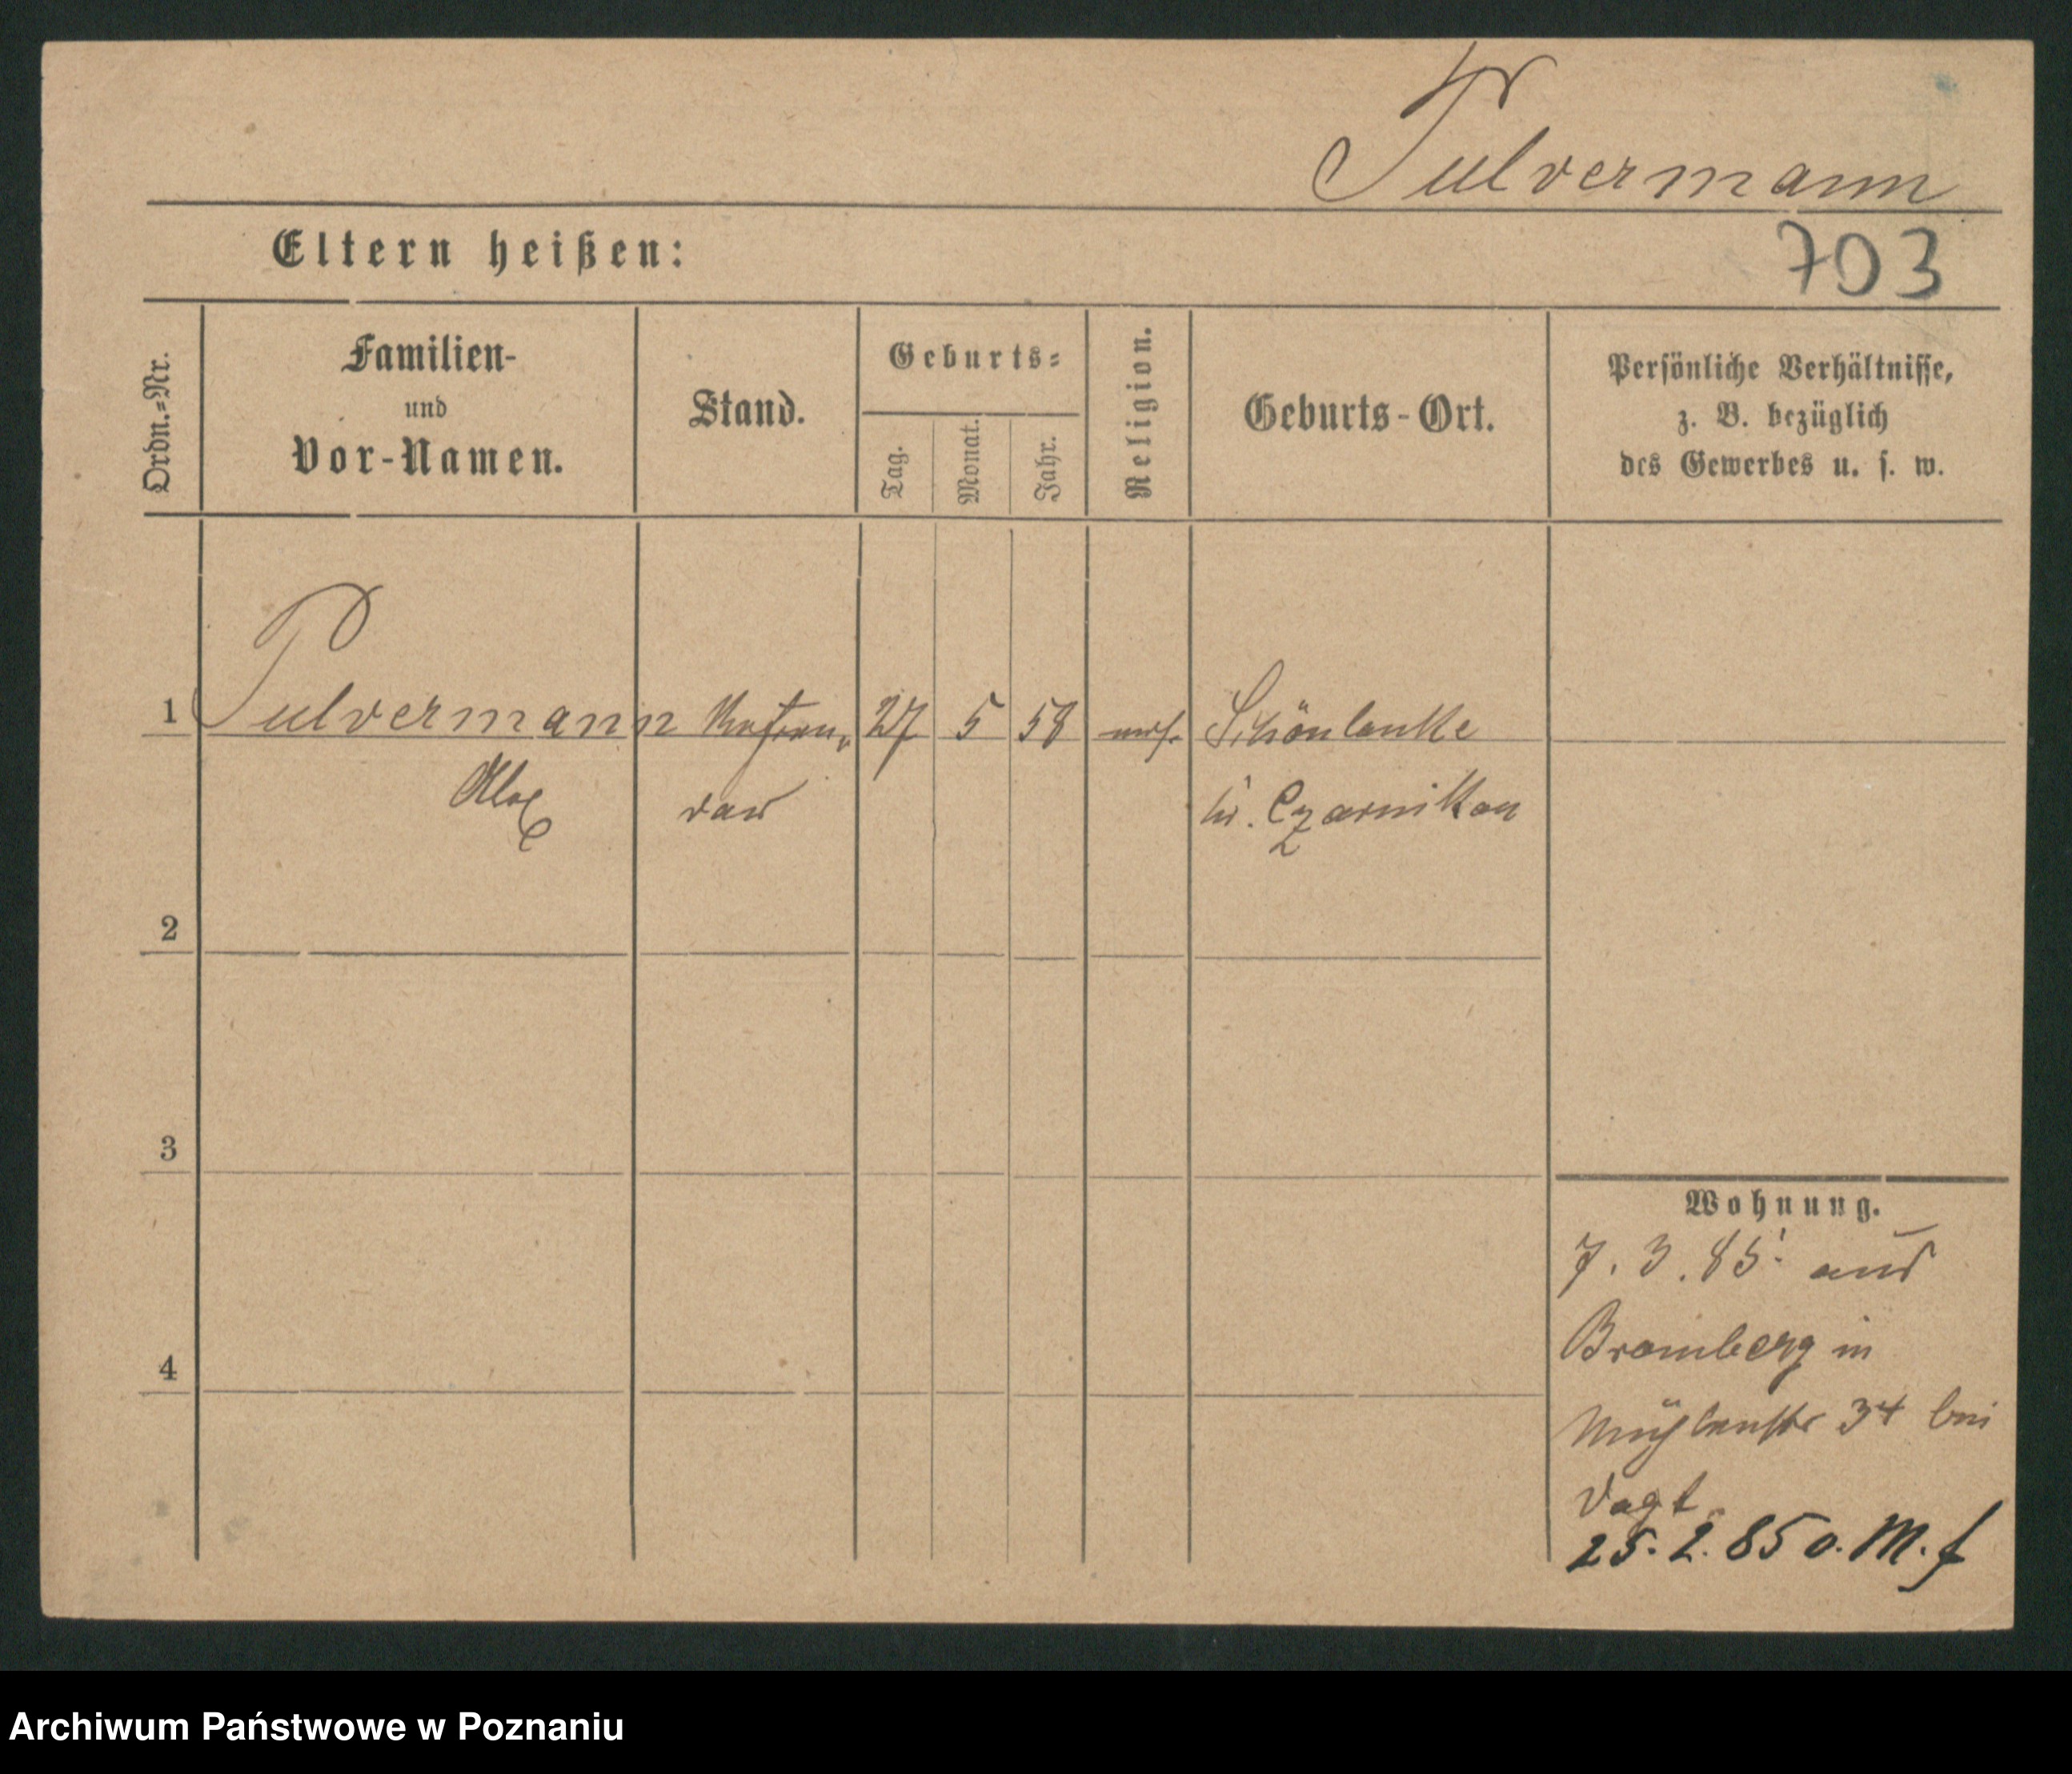 Pulvermann
703
Eltern heißen:
Ordn.=Nr.
Familien-
und
Vor-Namen.
Stand.
Geburts=
Tag.
Monat.
Jahr.
Religion.
Geburts-Ort.
Persönliche Verhältnisse,
z. B. bezüglich
des Gewerbes u. s. w.
1 Pulvermann Referen- 27 5 58 mos. Schönlanke
Alex dar Kr. Czarnikau
2
3
4
Wohnung.
7. 3. 85. aus
Bromberg in
Mühlenstr 34 bei
Vogt
25. 2. 85 o. M. f
Archiwum Państwowe w Poznaniu